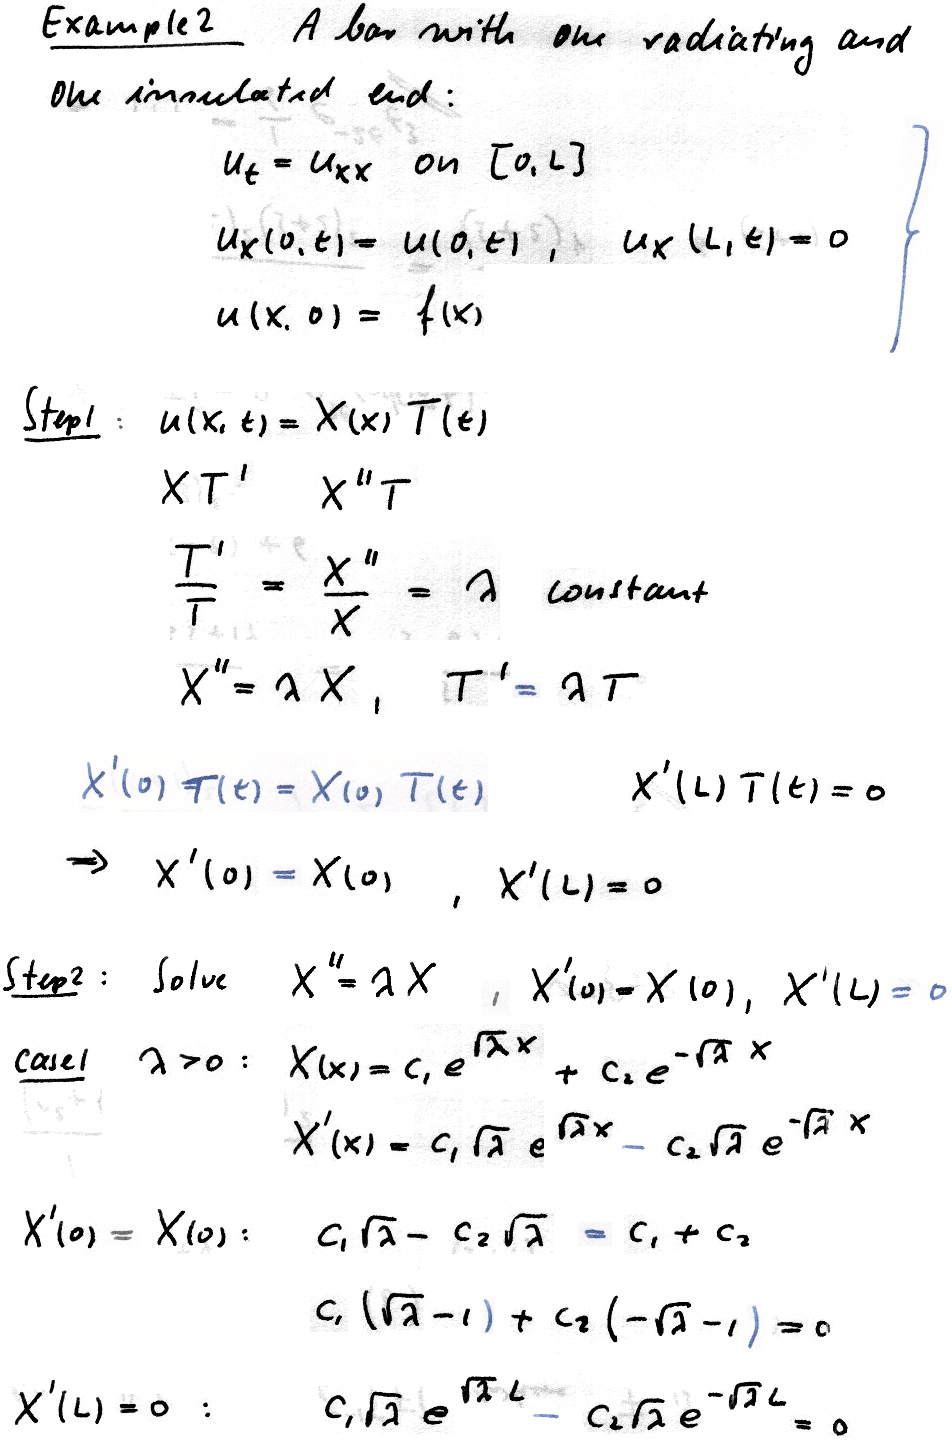 Example 2 A bar with one radiating and
one insulated end:
u_t = u_xx on [0, L]
u_x(0, t) = u(0, t), u_x(L, t) = 0
u(x, 0) = f(x)
Step 1: u(x, t) = X(x) T(t)
XT' X''T
T'/T = X''/X = λ constant
X'' = λX, T' = λT
X'(0) T(t) = X(0) T(t) X'(L) T(t) = 0
⇒ X'(0) = X(0), X'(L) = 0
Step 2: Solve X'' = λX, X'(0) = X(0), X'(L) = 0
Case 1 λ > 0: X(x) = c₁ e^{√λ x} + c₂ e^{-√λ x}
X'(x) = c₁ √λ e^{√λ x} - c₂ √λ e^{-√λ x}
X'(0) = X(0): c₁ √λ - c₂ √λ = c₁ + c₂
c₁ (√λ - 1) + c₂ (-√λ - 1) = 0
X'(L) = 0: c₁ √λ e^{√λ L} - c₂ √λ e^{-√λ L} = 0